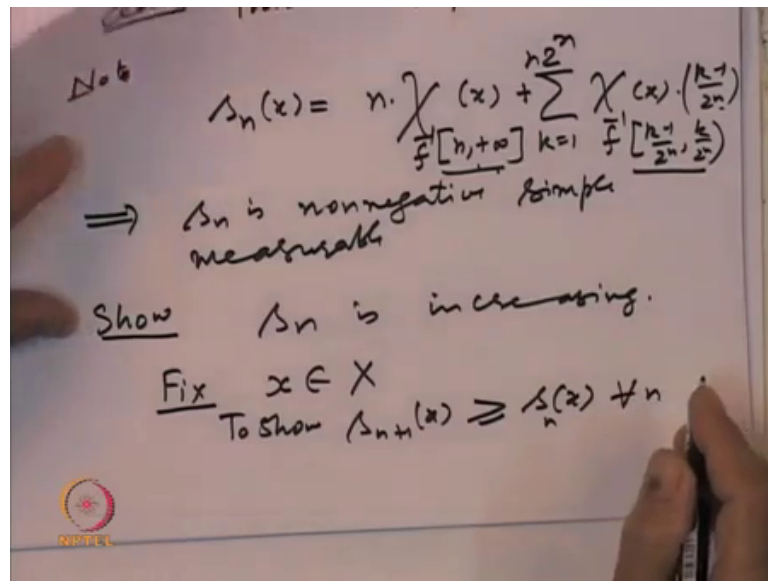 Note
s_n(x) = n · χ_{f^{-1}[n, +∞]}(x) + Σ_{k=1}^{n2^n} χ_{f^{-1}[(k-1)/2^n, k/2^n)}(x) · ((k-1)/2^n)
⇒ s_n is nonnegative simple
measurable
Show s_n is increasing.
Fix x ∈ X
To show s_{n+1}(x) ≥ s_n(x) ∀ n
NPTEL